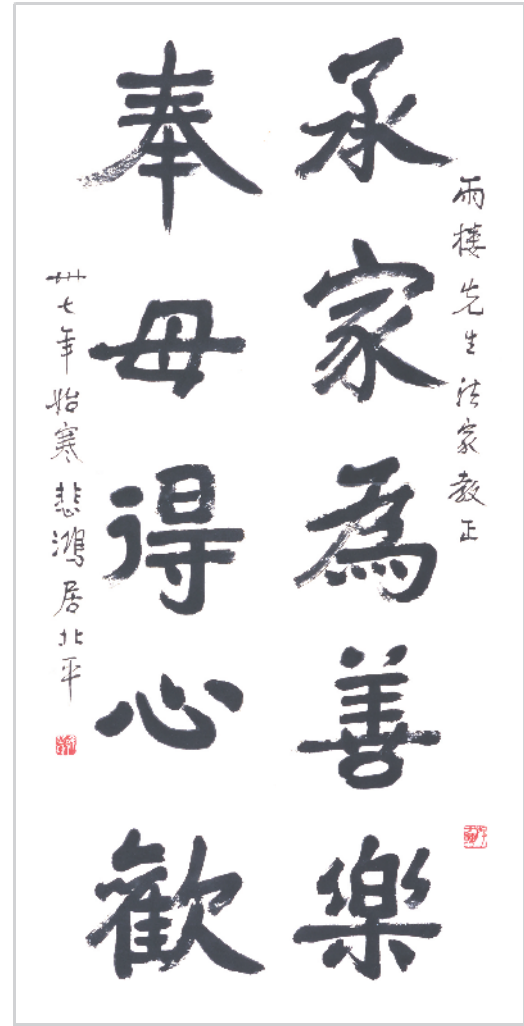 雨樓先生法家教正
承家為善樂
奉母得心歡
卅七年始寒悲鴻居北平